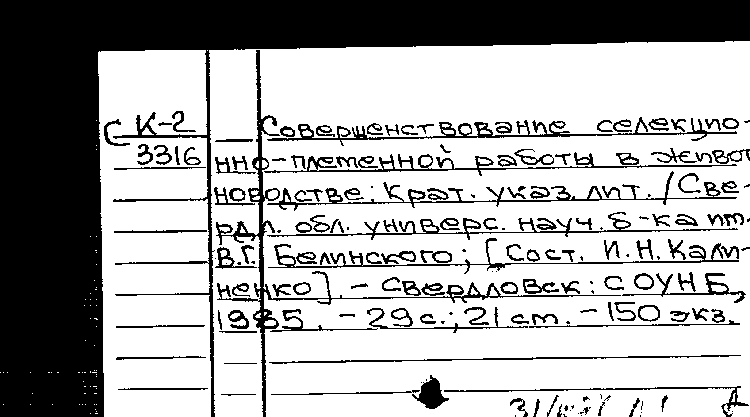 С К-2
3316
Совершенствование селекцио-
нно-племенной работы в живот
новодстве: Крат. указ. лит. / Све-
рдл. обл. универс. науч. б-ка им.
В.Г. Белинского; [Сост. И.Н. Кали-
ненко]. - Свердловск: СОУНБ,
1985. - 29 с.; 21 см. - 150 экз.